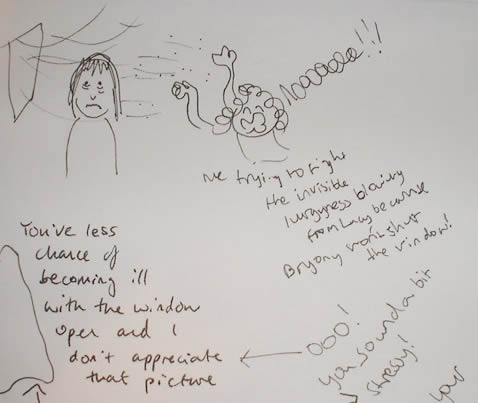 Noooooo!!!
me trying to fight
the invisible
lurgyness blowing
from Lucy because
Bryony won't shut
the window!
You've less
chance of
becoming ill
with the window
open and I
don't appreciate
that picture
OOO!
you sound a bit
stressy!
your